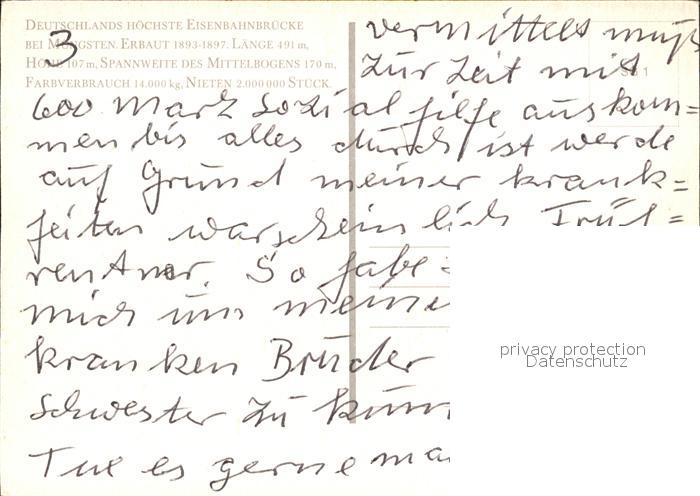 DEUTSCHLANDS HÖCHSTE EISENBAHNBRÜCKE
BEI MÜNGSTEN. ERBAUT 1893-1897. LÄNGE 491 m,
HÖHE 107 m, SPANNWEITE DES MITTELBOGENS 170 m,
FARBVERBRAUCH 14.000 kg, NIETEN 2.000 000 STÜCK.
3
vermittelt muß
zur Zeit mit
600 Mark Sozialhilfe auskom=
men bis alles durch ist werde
auf Grund meiner krank=
heiten warscheinlich Früh=
rentner. So habe
mich um meine
kranken Bruder
Schwester zu
Tue es gerne
privacy protection
Datenschutz